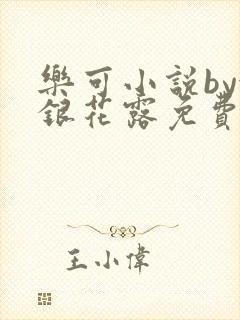 樂可小説by
銀花露免費
王小偉